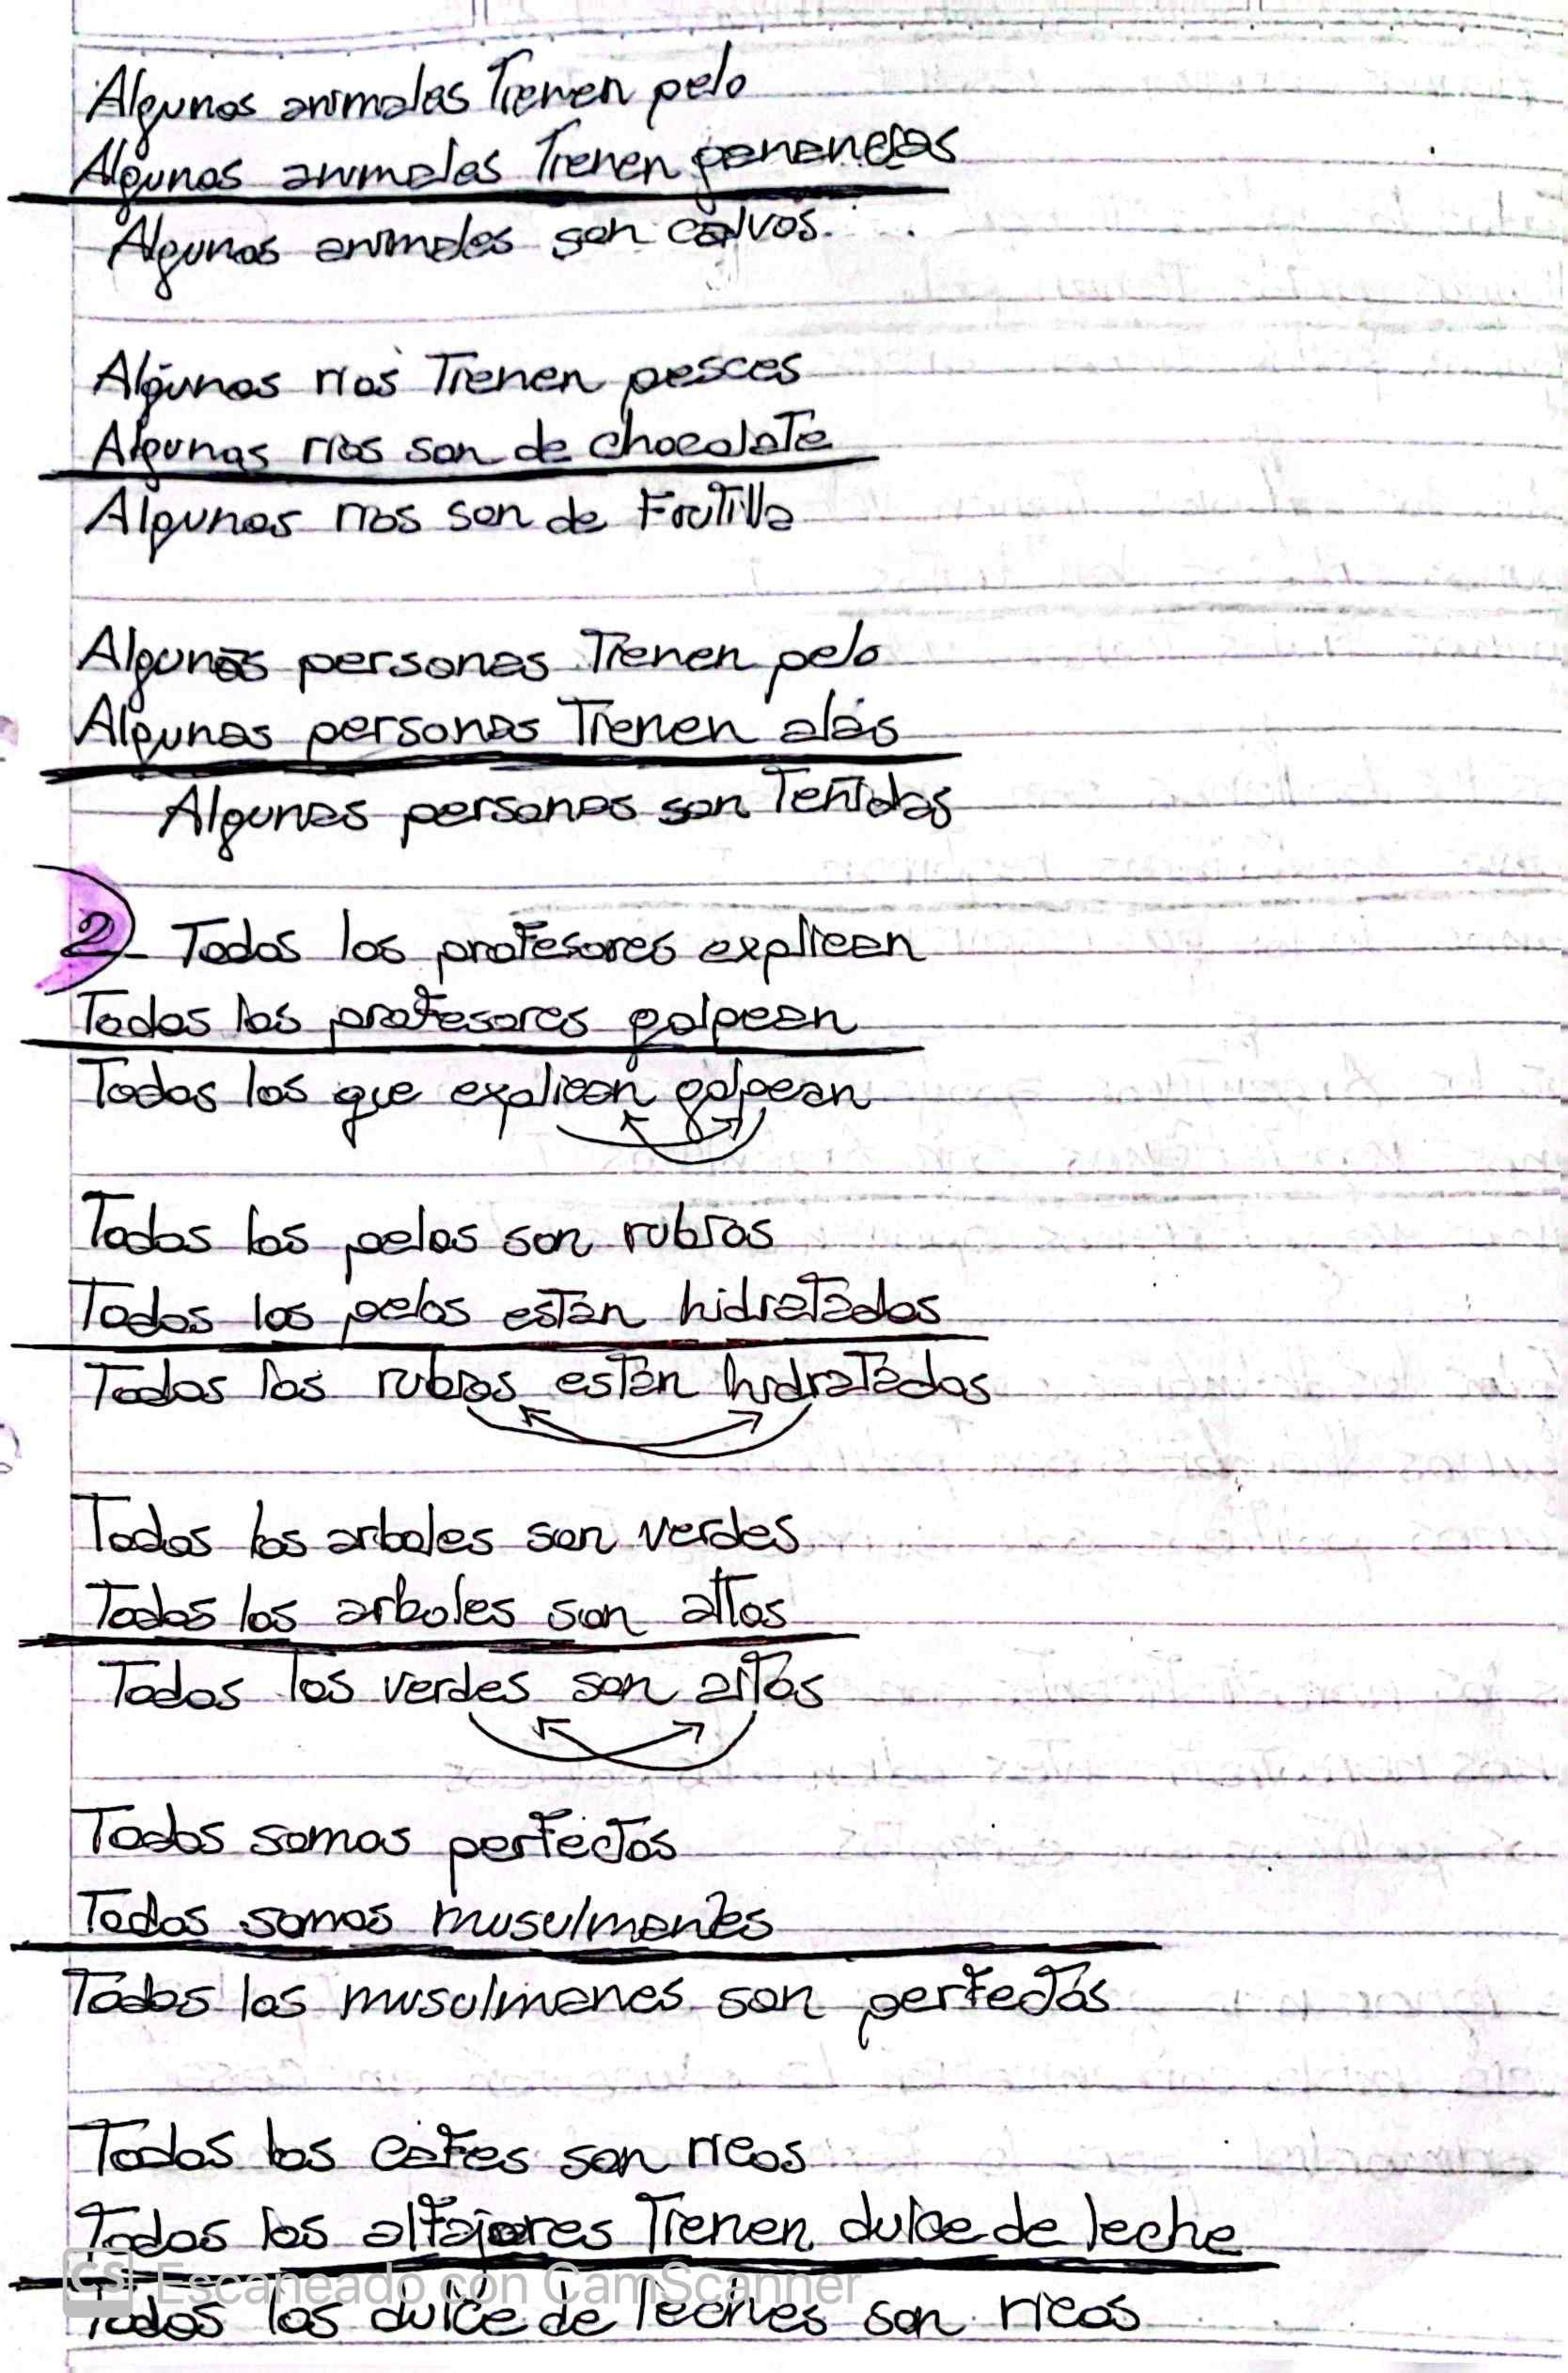 Algunos animales Tienen pelo
Algunos animales Tienen ganancias
Algunos animales son calvos.
Algunos rios Tienen pesces
Algunos rios son de chocolate
Algunos rios son de Frutilla
Algunas personas Tienen pelo
Algunas personas Tienen alas
Algunas personas son Teñidas
2- Todos los profesores explican
Todos los profesores golpean
Todos los que explican golpean
Todos los pelos son rubios
Todos los pelos están hidratados
Todos los rubios están hidratados
Todos los arboles son verdes
Todos los arboles son altos
Todos los verdes son altos
Todos somos perfectos
Todos somos musulmanes
Todos los musulmanes son perfectos
Todos los cafes son ricos
Todos los alfajores Tienen dulce de leche
CS Escaneado con CamScanner
Todos los dulce de leches son ricos